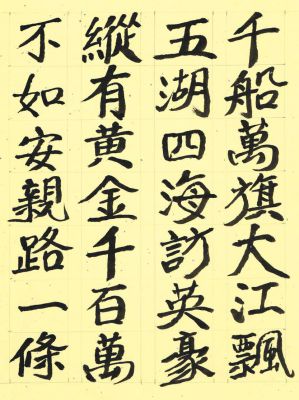 千船萬旗大江飄
五湖四海訪英豪
縱有黃金千百萬
不如安親路一條